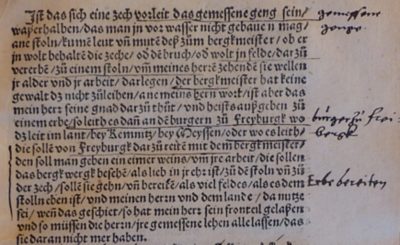 Jst das sich eine zech vorleit das gemessene geng sein/
waßerhalben/ das man jn vor wasser nicht gebauen mag/
ane stoln/ kumēt leut vn̄ mutē deß zum bergkmeister/ ob er
jn wolt behaltē die zeche/ od dē bruch/ od wolt jn felde/ dar zů
vererbē/ zů einem stoln/ vm̄ meines herrē zehendē sie wellen
jr alder vnd jr arbeit/ dar legen/ der bergkmeister hat keine
gewalt dz nicht zů leihen/ ane meins hern wort/ ist aber das
mein herr seine gnad dar zů thůt/ vnd heists aufgeben zů
einem erbe/ so leith es dan̄ an dē bürgern zů Freyburgk wo
dz leit im land/ bey Kemnitz/ bey Meyssen/ oder wo es leith/
die sollē von Freyburgk dar zů reitē mit dem bergkmeister/
den soll man geben ein eimer weins/ vm̄ jre arbeit/ die sollen
das bergk werg beschē/ als lieb in jr ehr ist/ zů dē stoln vn̄ zů
der zech/ sollē sie gehn/ vn̄ bereitē/ als viel feldes/ als es dem
stoln eben ist/ vnd meinen herrn vnd dem lande/ da nutze
sei/ wen̄ das geschiet/ so hat mein herr sein fronteil gelaßen
vnd so müssen die herrn/ jre gemessene lehen alle lassen/ das
sie daran nicht mer haben.
gemessene
genge
bürger zu frei-
bergk
Erbe bereiten